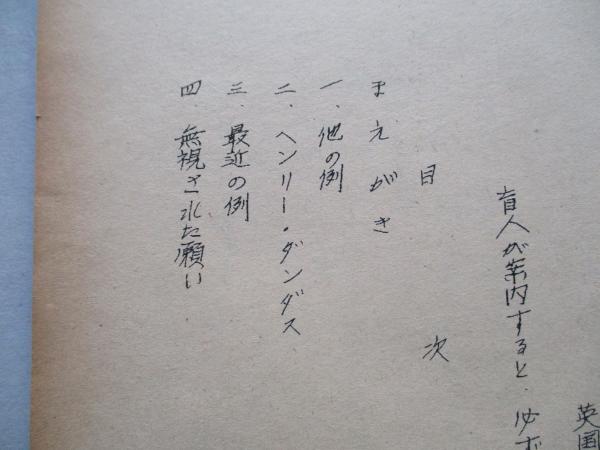 英国
盲人が案内すると、必ず
目次
まえがき
一、他の例
二、ヘンリー・ダンダス
三、最近の例
四、無視された願い